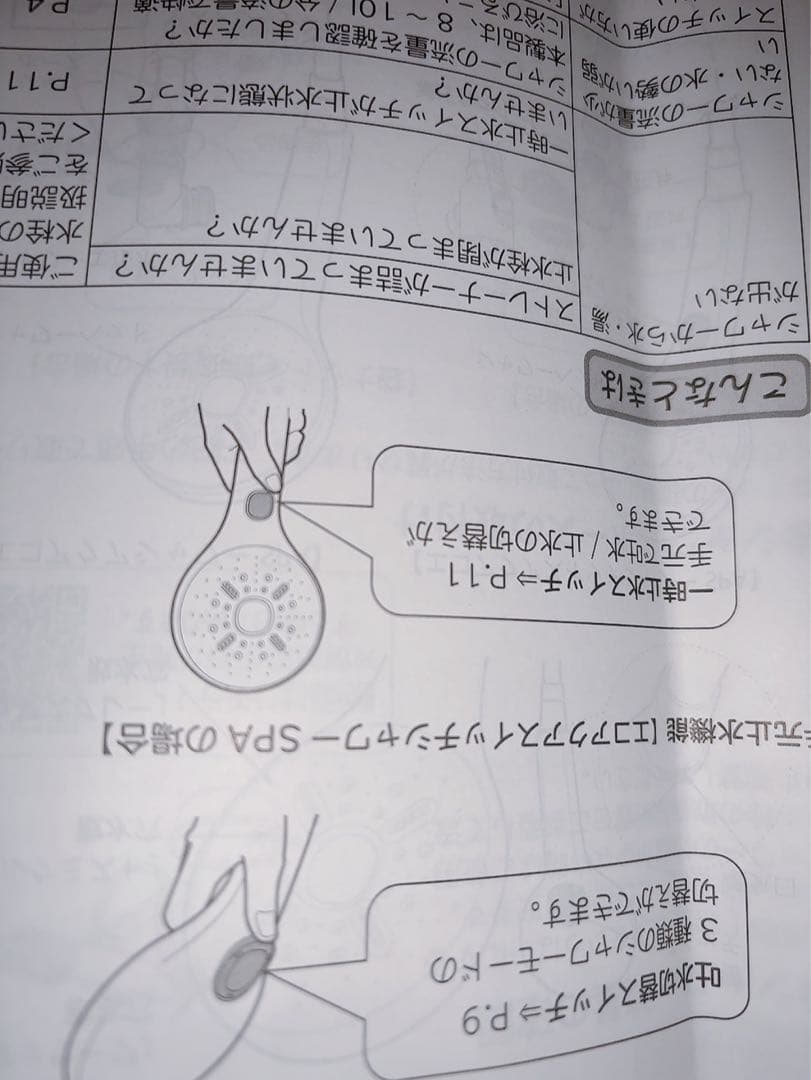 吐水切替スイッチ⇒P.9
3種類のシャワーモードの
切替えができます。
元止水機能【エコアクアスイッチシャワーSPAの場合】
一時止水スイッチ⇒P.11
手元で吐水/止水の切替えが
できます。
こんなときは
シャワーから水・湯
が出ない
ストレーナーが詰まっていませんか?
止水栓が閉まっていませんか?
ご使用
水栓の
扱説明
をご参
くださ
シャワーの流量が少
ない・水の勢いが弱
い
一時止水スイッチが止水状態になって
いませんか?
P.11
シャワーの流量を確認しましたか?
本製品は、8~10L/分の流量で快適
に浴びる
P.4
スイッチの使い方が